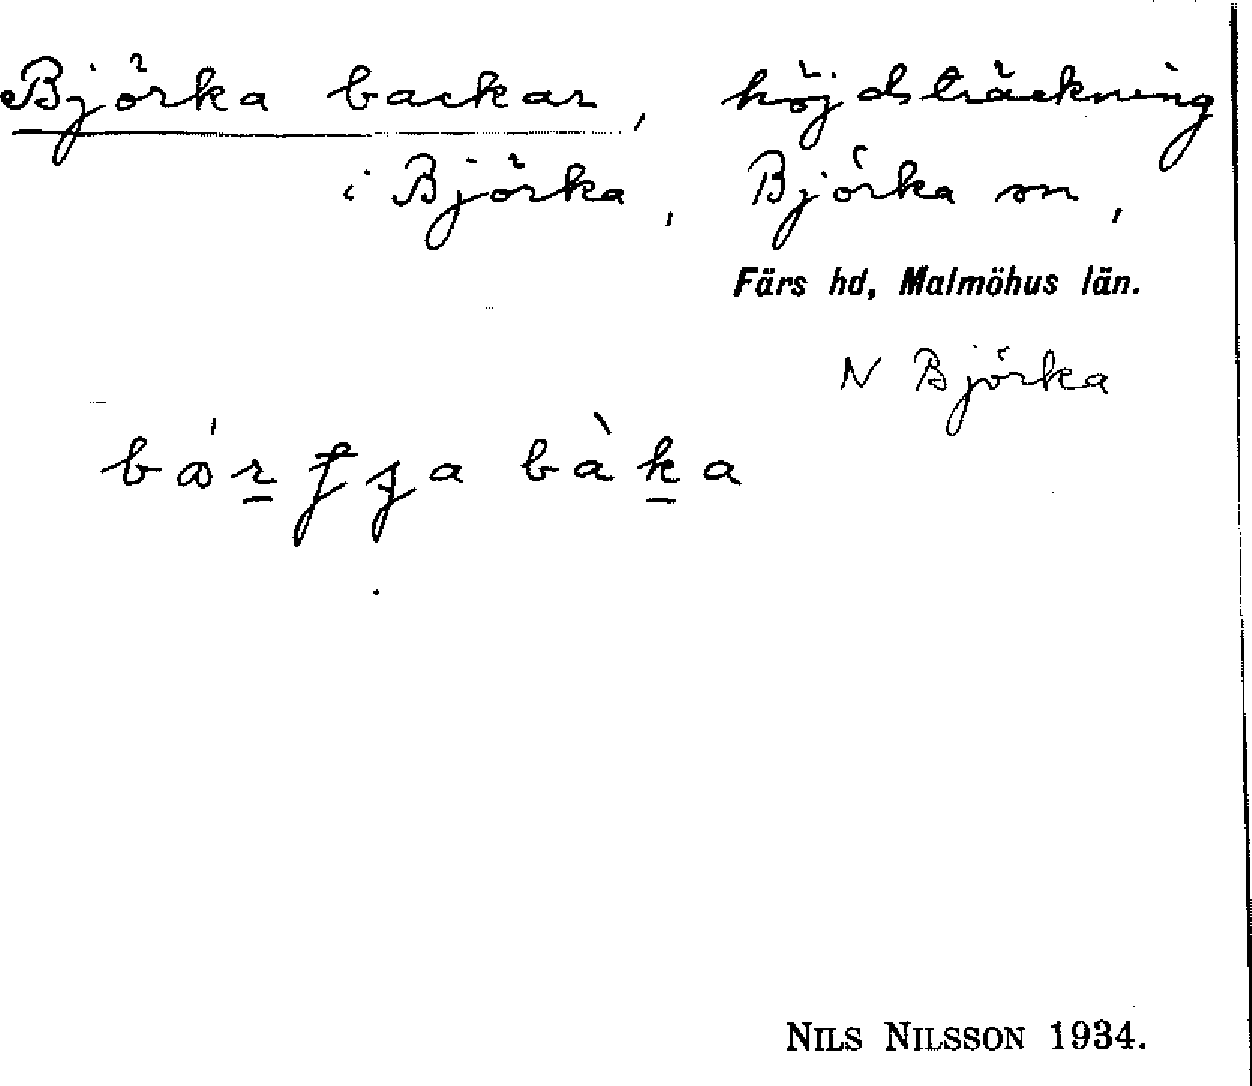 Björka backar, höjdsträckning
i Björka, Björka sn,
Färs hd, Malmöhus län.
N Björka
NILS NILSSON 1934.